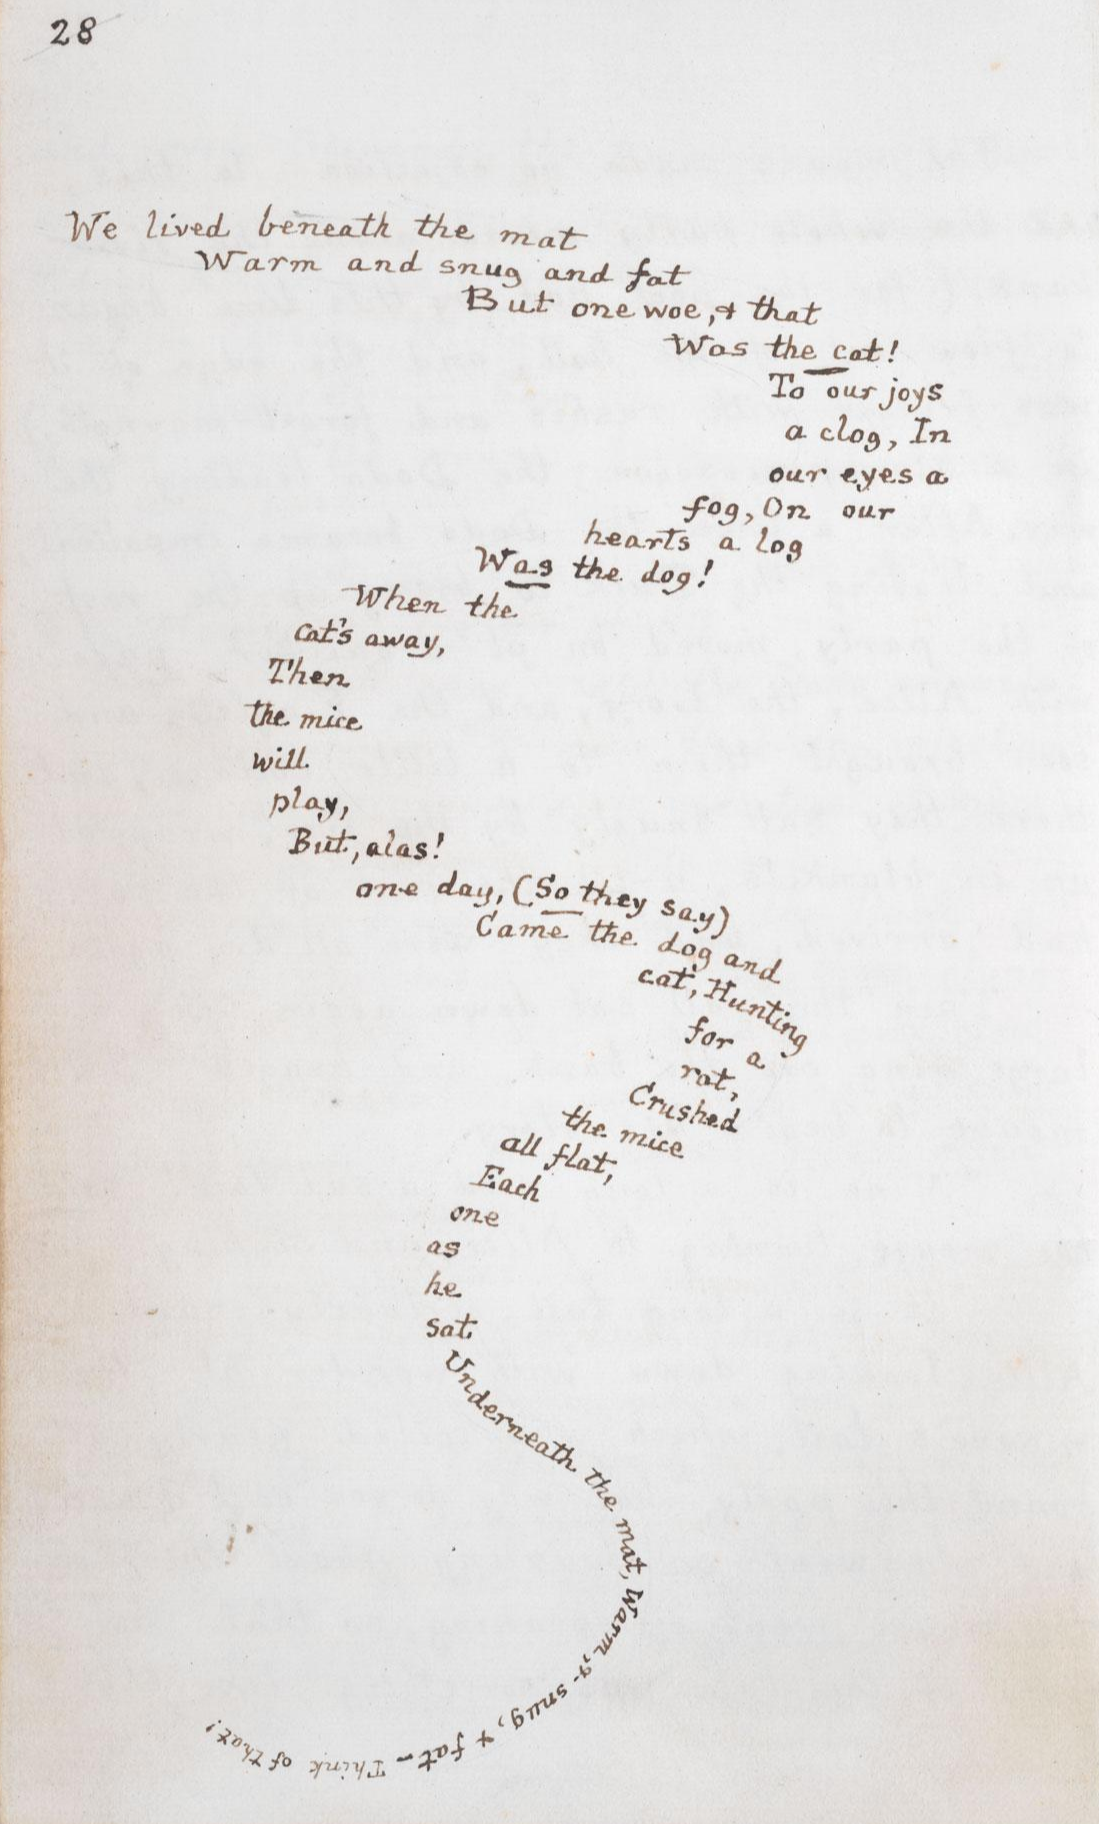 28
We lived beneath the mat
Warm and snug and fat
But one woe, & that
Was the cat!
To our joys
a clog, In
our eyes a
fog, On our
hearts a log
Was the dog!
When the
cat's away,
Then
the mice
will
play,
But, alas!
one day, (So they say)
Came the dog and
cat, Hunting
for a
rat,
Crushed
the mice
all flat,
Each
one
as
he
sat
Underneath the mat, Warm, & snug, & fat - Think of that!